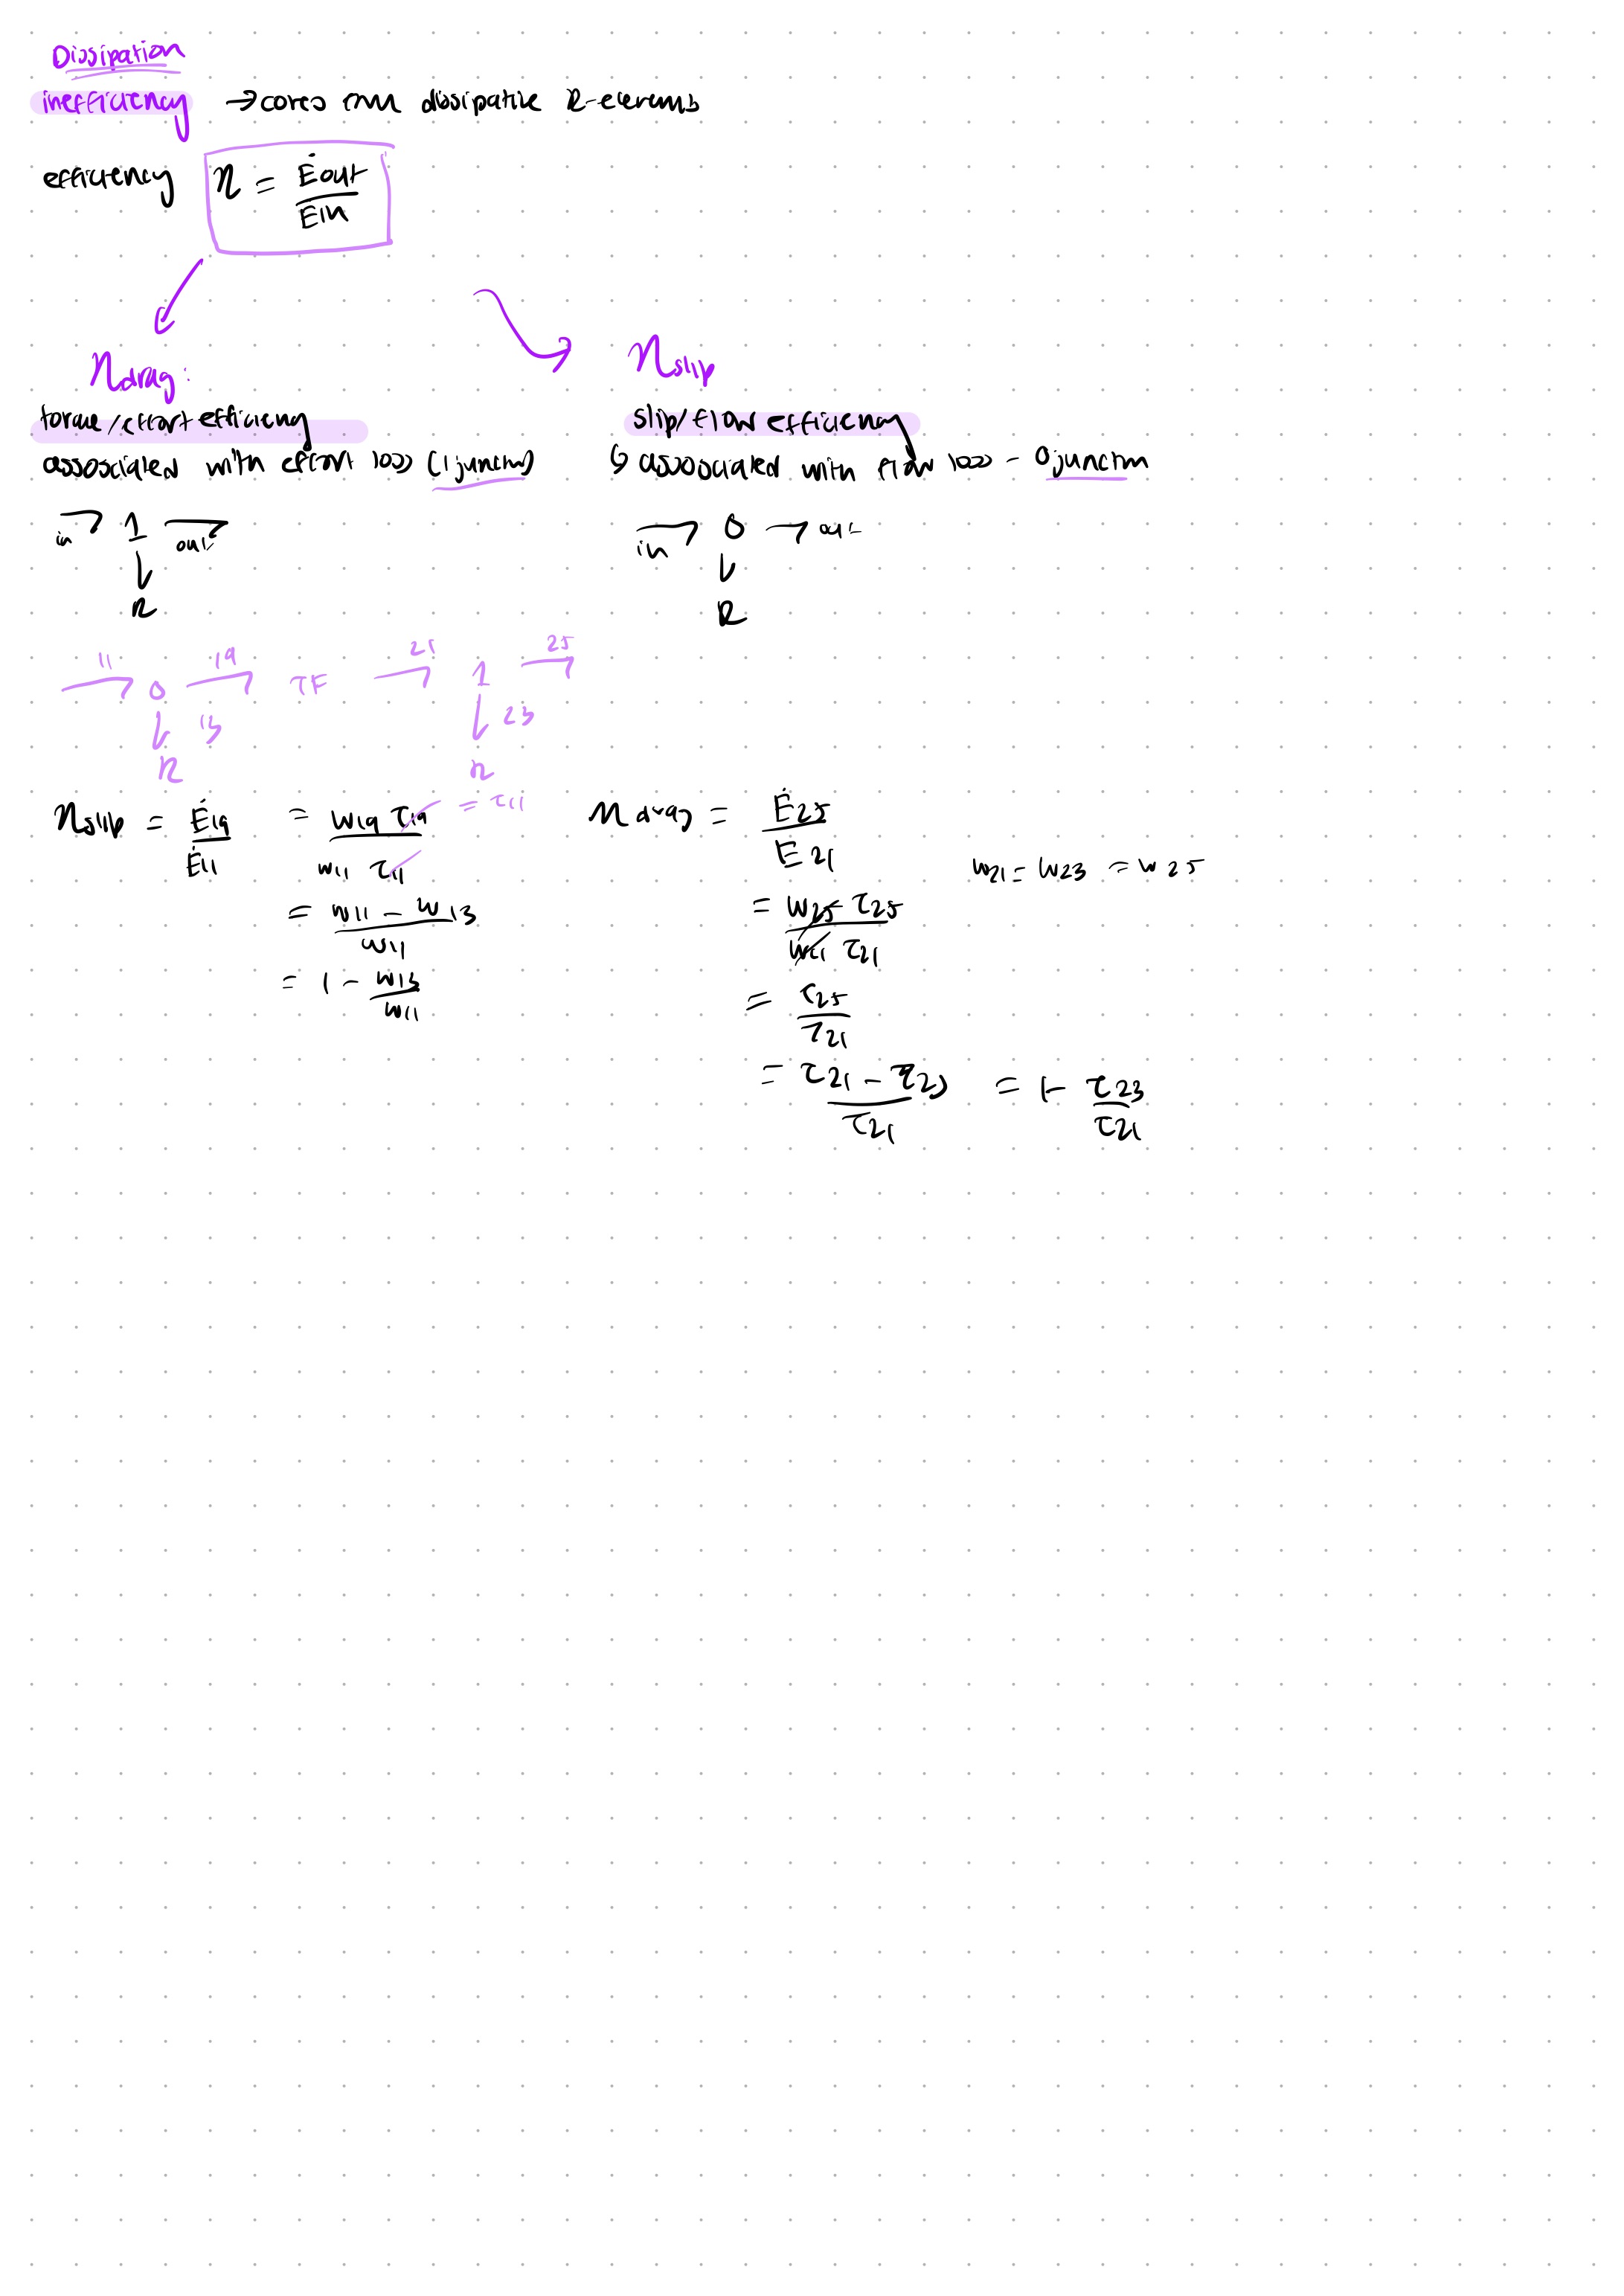 Dissipation
inefficiency → comes from dissipative R-elements
efficiency η = Ėout / Ein
ηdrag:
torque/effort efficiency
assosciated with effort loss (1 junction)
in 1 out
R
ηslip
slip/flow efficiency
↳ assosciated with flow loss - 0 junction
in 0 out
R
11 0 19 TF 21 1 25
13 23
R R
ηslip = Ė19 / Ė11 = ω19 τ19 / ω11 τ11 = τ11
= ω11 - ω13 / ω11
= 1 - ω13 / ω11
ηdrag = Ė25 / E21
ω21 = ω23 = ω25
= ω25 τ25 / ω21 τ21
= τ25 / τ21
= τ21 - τ23 / τ21 = 1 - τ23 / τ21